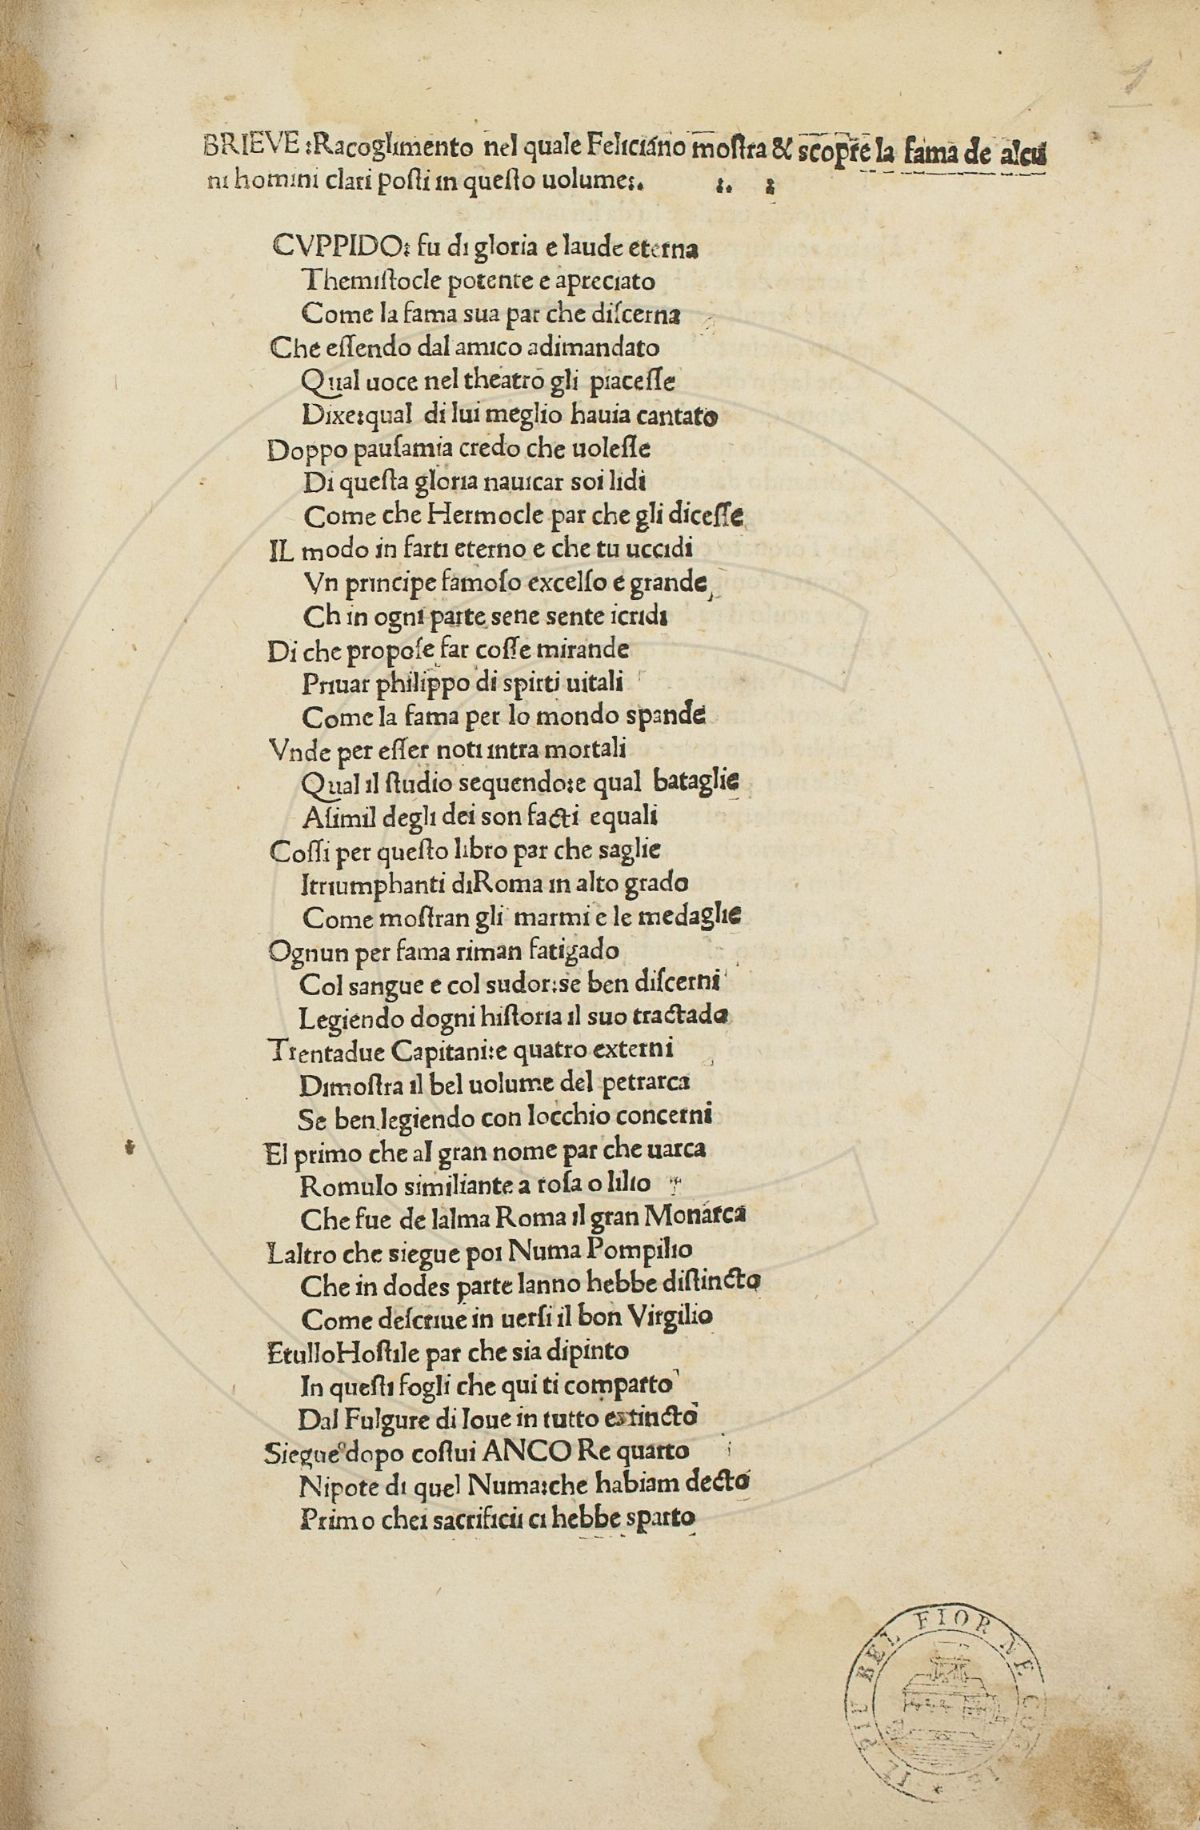 1
BRIEVE :Racoglimento nel quale Feliciano moſtra & ſcopre la fama de alcu
ni homini clari poſti in queſto uolume:.   :.   :
CVPPIDO: fu di gloria e laude eterna
Themiſtocle potente e apreciato
Come la fama sua par che diſcerna
Che eſſendo dal amico adimandato
Qual uoce nel theatro gli piaceſſe
Dixe:qual di lui meglio hauia cantato
Doppo pauſamia credo che uoleſſe
Di queſta gloria nauicar soi lidi
Come che Hermocle par che gli diceſſe
IL modo in farti eterno e che tu uccidi
Vn principe famoſo excelſo e grande
Ch in ogni parte sene sente icridi
Di che propoſe far coſſe mirande
Priuar philippo di spirti uitali
Come la fama per lo mondo spande
Vnde per eſſer noti intra mortali
Qual il ſtudio sequendo:e qual bataglie
Aſimil degli dei son facti equali
Coſſi per queſto libro par che saglie
Itriumphanti diRoma in alto grado
Come moſtran gli marmi e le medaglie
Ognun per fama riman fatigado
Col sangue e col sudor:se ben diſcerni
Legiendo dogni hiſtoria il suo tractado
Trentadue Capitani:e quatro externi
Dimoſtra il bel uolume del petrarca
Se ben legiendo con locchio concerni
El primo che al gran nome par che uarca
Romulo similiante a roſa o lilio
Che fue de lalma Roma il gran Monarca
Laltro che siegue poi Numa Pompilio
Che in dodes parte lanno hebbe diſtincto
Come deſcriue in uerſi il bon Virgilio
EtulloHoſtile par che sia dipinto
In queſti fogli che qui ti comparto
Dal Fulgure di Ioue in tutto extincto
Siegue dopo coſtui ANCO Re quarto
Nipote di quel Numa:che habiam decto
Primo chei sacrificii ci hebbe sparto
IL PIU BEL FIOR NE COGLIE